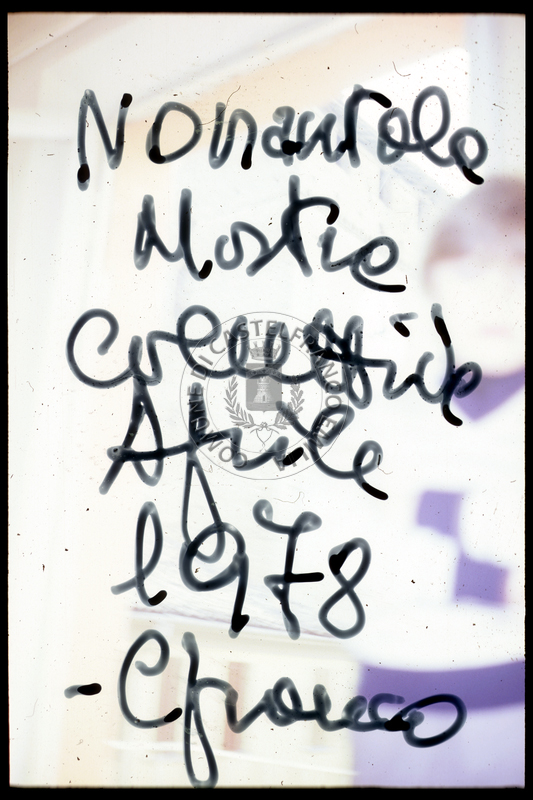 Nonantola
Mostre
Collettive
Aprile
1978
COMUNE DI CASTELFRANCO EMILIA